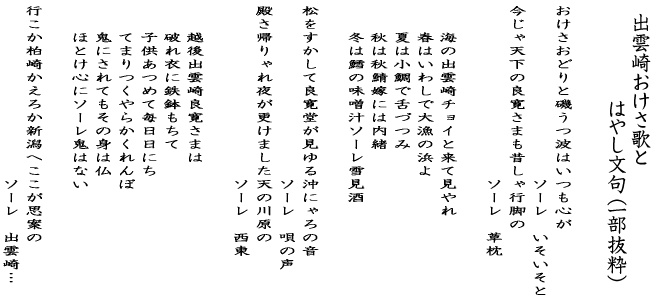 出雲崎おけさ歌と
はやし文句(一部抜粋)
おけさおどりと磯うつ波はいつも心が
ソーレ いそいそと
今じゃ天下の良寛さまも昔しゃ行脚の
ソーレ 草枕
海の出雲崎チョイと来て見やれ
春はいわしで大漁の浜よ
夏は小鯛で舌づつみ
秋は秋鯖嫁には内緒
冬は鱈の味噌汁ソーレ雪見酒
松をすかして良寛堂が見ゆる沖にゃろの音
ソーレ 唄の声
殿さ帰りゃれ夜が更けました天の川原の
ソーレ 西東
越後出雲崎良寛さまは
破れ衣に鉄鉢もちて
子供あつめて毎日日にち
てまりつくやらかくれんぼ
鬼にされてもその身は仏
ほとけ心にソーレ鬼はない
行こか柏崎かえろか新潟へここが思案の
ソーレ 出雲崎…